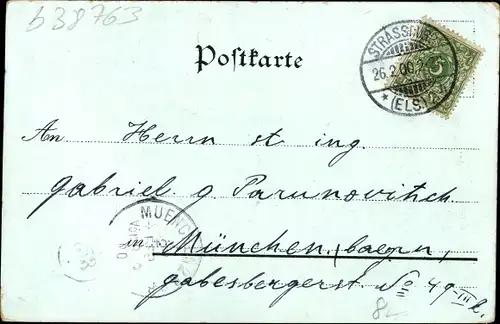 b38763
Postkarte
STRASSBURG
26.2.00.
* (ELS.)
5
An Herrn st ing.
Gabriel g Parunovitsch
MUENCHEN
in München (bayern)
gabesbergerst No 49 III l.
8